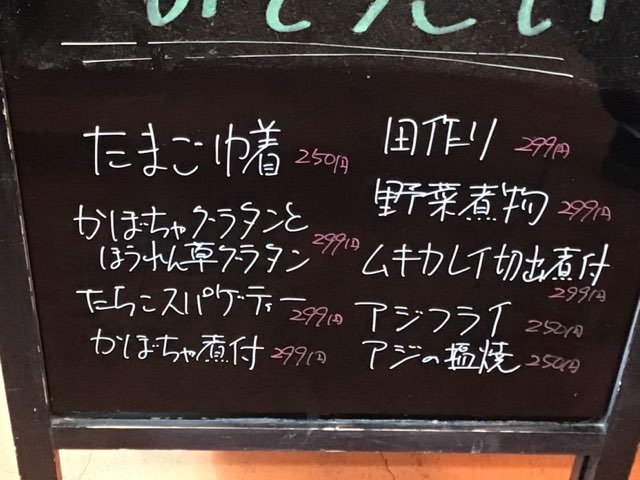 たまご巾着 250円
かぼちゃグラタンと
ほうれん草グラタン 299円
たらこスパゲティー 299円
かぼちゃ煮付 299円
田作り 299円
野菜煮物 299円
ムキカレイ切出煮付
299円
アジフライ 250円
アジの塩焼 250円